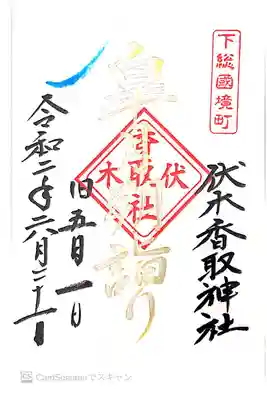 下総國境町
伏木香取神社
詣り
香取社
伏木
旧五月一日
令和二年六月二十一日
CS CamScannerでスキャン